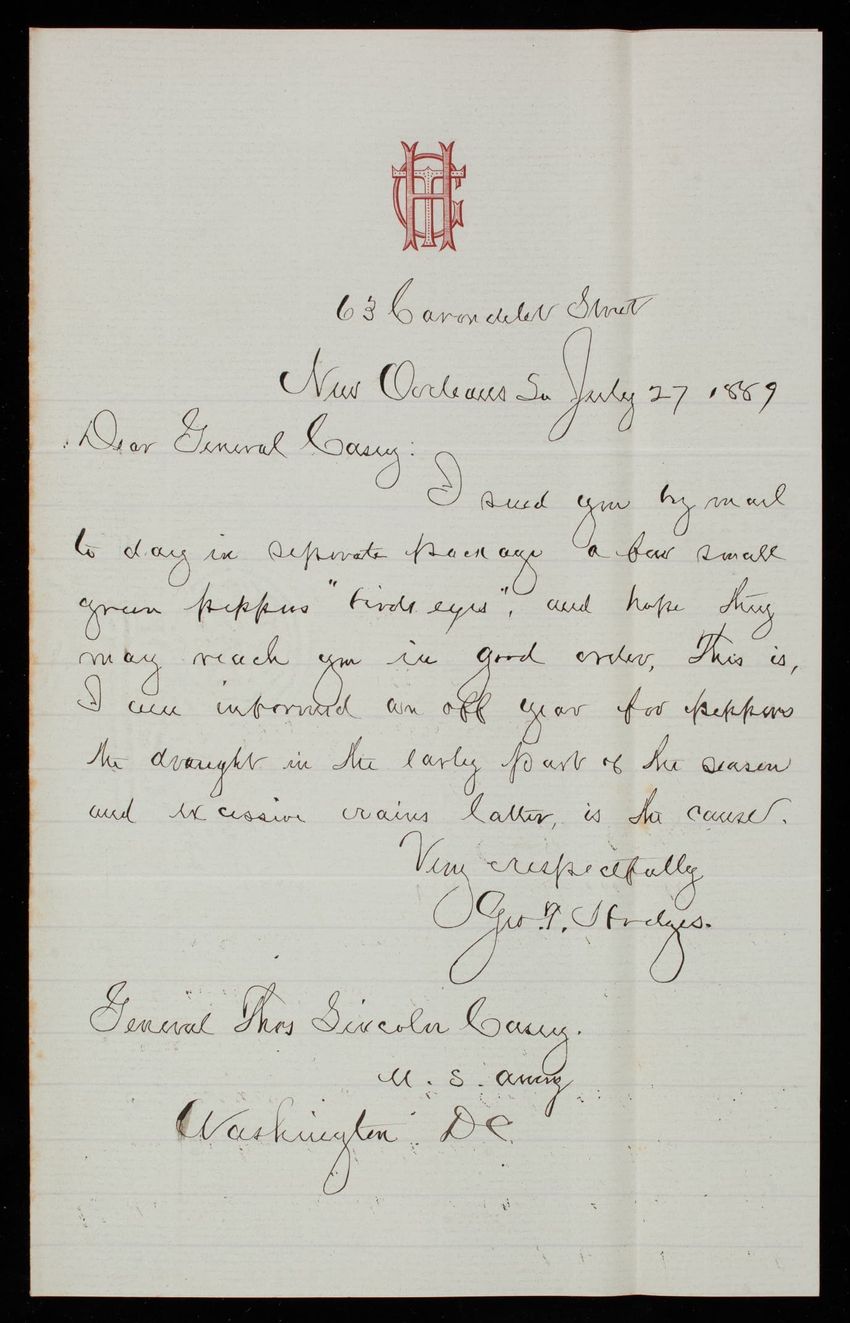 63 Carondelet Street
New Orleans La July 27 1889
Dear General Casey:
I send you by mail
to day in seperate package a few small
green peppers "birds eyes", and hope they
may reach you in good order, This is,
I am informed an off year for peppers
the draught in the early part of the season
and excessive rains latter, is the cause.
Very respectfully
Geo. T. Hodges.
General Thos Lincoln Casey.
U. S. Army
Washington DC